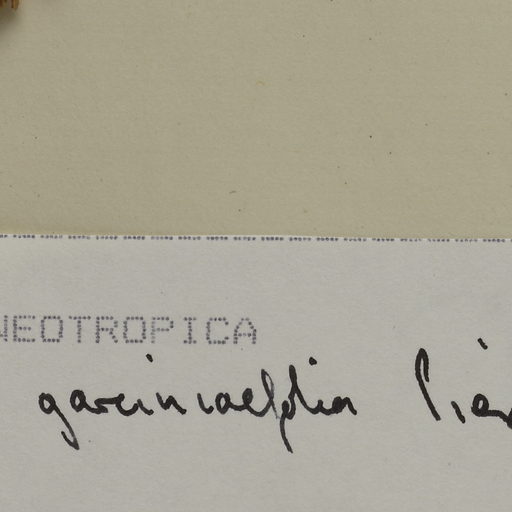 NEOTROPICA
garciniaefolia Pier